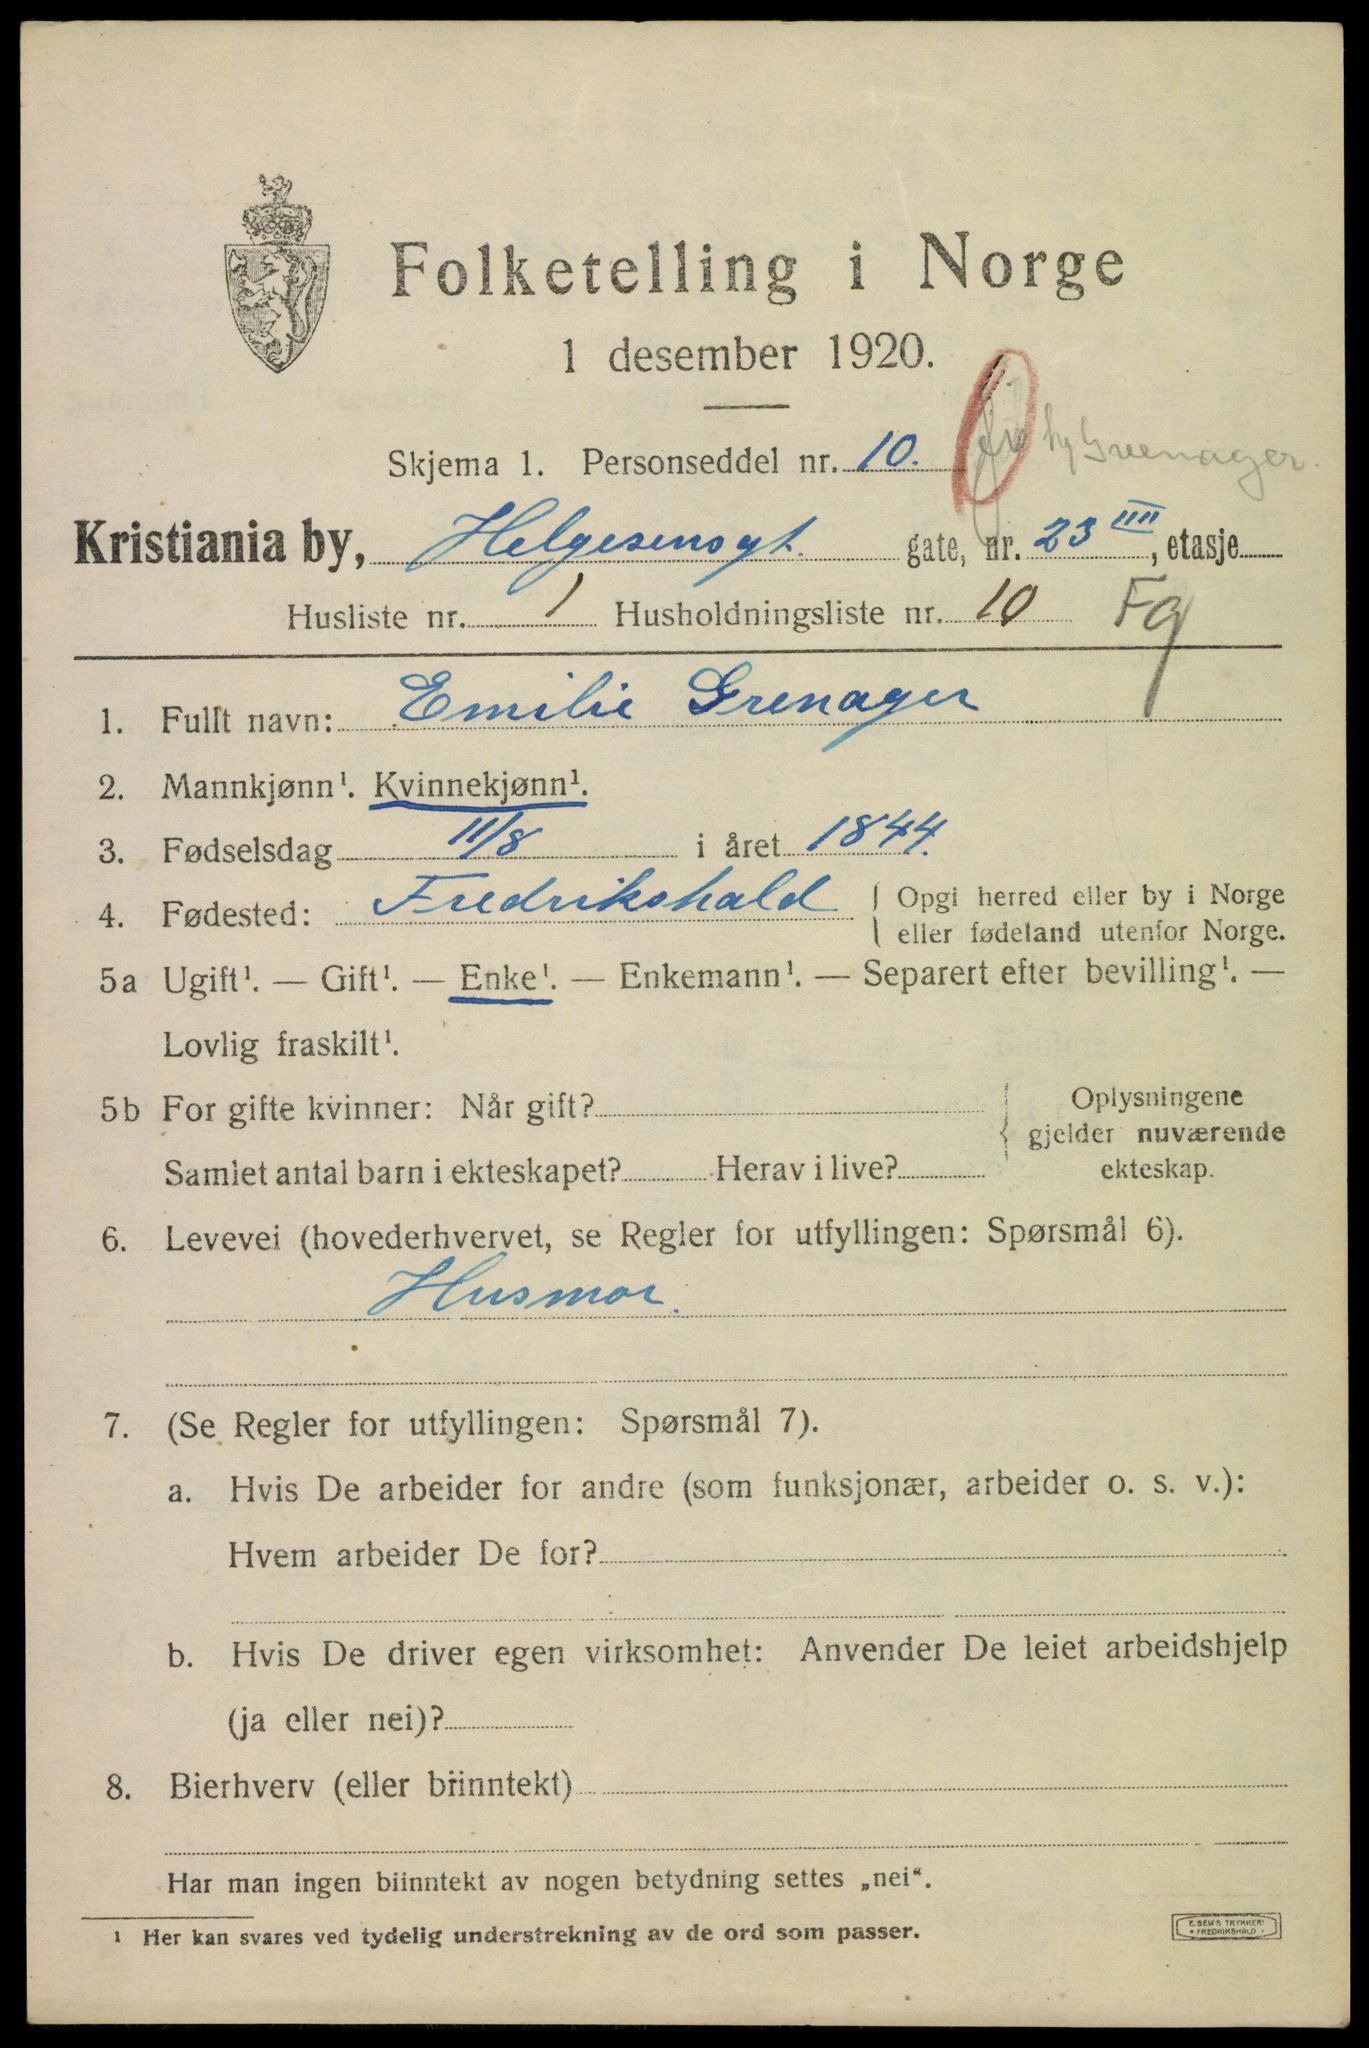 Folketelling i Norge
1 desember 1920.
Skjema 1. Personseddel nr. 10.
hy Grenager.
Kristiania by, Helgesensgt. gate, nr. 23 IIII, etasje
Husliste nr. 1 Husholdningsliste nr. 10 Fg
1. Fullt navn: Emilie Grenager
2. Mannkjønn¹. Kvinnekjønn¹.
3. Fødselsdag 11/8 i året 1844.
4. Fødested: Fredrikshald Opgi herred eller by i Norge
eller fødeland utenfor Norge.
5a Ugift¹. — Gift¹. — Enke¹. — Enkemann¹. — Separert efter bevilling¹. —
Lovlig fraskilt¹.
5b For gifte kvinner: Når gift?
Samlet antal barn i ekteskapet? Herav i live?
Oplysningene
gjelder nuværende
ekteskap.
6. Levevei (hovederhvervet, se Regler for utfyllingen: Spørsmål 6).
Husmor.
7. (Se Regler for utfyllingen: Spørsmål 7).
a. Hvis De arbeider for andre (som funksjonær, arbeider o. s. v.):
Hvem arbeider De for?
b. Hvis De driver egen virksomhet: Anvender De leiet arbeidshjelp
(ja eller nei)?
8. Bierhverv (eller biinntekt)
Har man ingen biinntekt av nogen betydning settes „nei“.
¹ Her kan svares ved tydelig understrekning av de ord som passer.
E. SEM'S TRYKKERI
FREDRIKSHALD